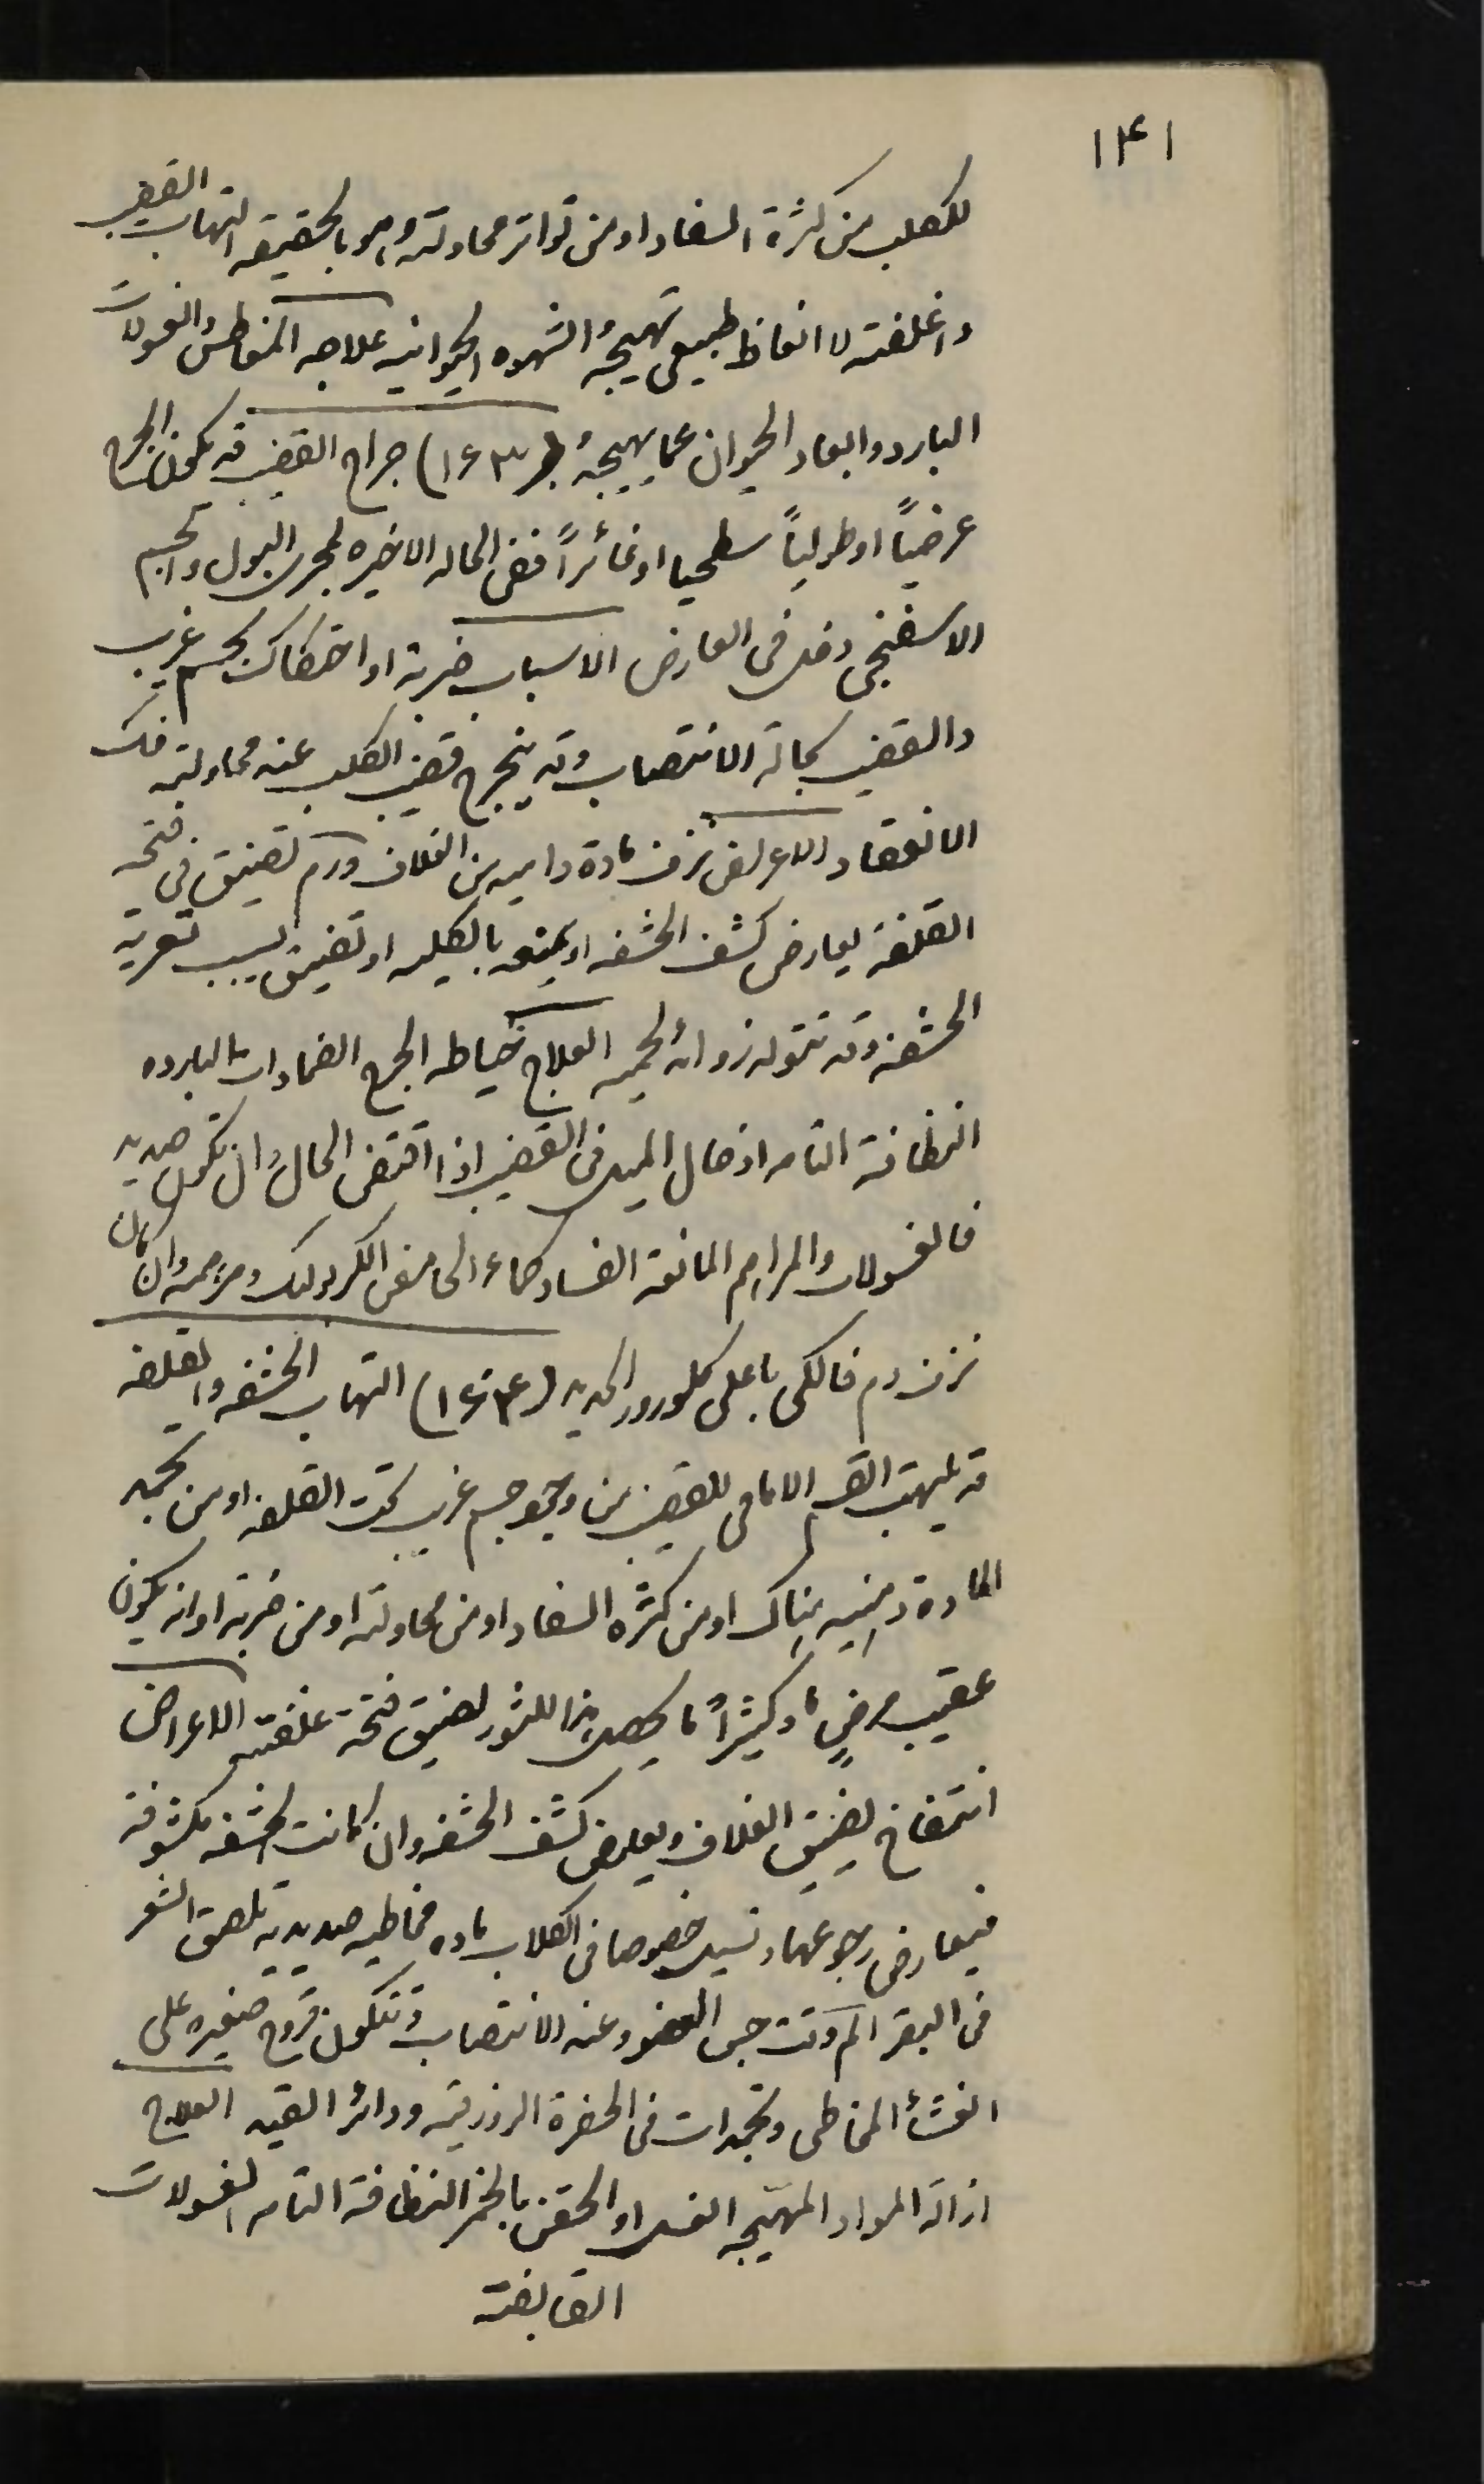 ١٤١
للكلب من كثرة السفاد او من تواتر محاولته وهو بالحقيقه التهاب القضيب
واغلفته لا انعاظ طبيعي تهيجهُ الشهوه الحيوانيه علاجه المغاطس والغسولات
البارد وابعاد الحيوان عما يهيجهُ (١٦٣) جراح القضيب قد يكون الجرح
عرضياً او طولياً سطحيا او غائراً ففي الحاله الاخيره لمجرى البول والجسم
الاسفنجي دخل في العارض الاسباب ضربة او احتكاك بجسم غريب
والقضيب بحالة الانتصاب وقد ينجرح قضيب الكلب عند محاولته فك
الانعقاد الاعراض نزف مادة داميه من الغلاف ورم تضيق في فتحة
القلفة يعارض كشف الحشفه او يمنعه بالكليه او تضيق يسبب تعرية
الحشفه وقد تتولد زوائد لحميه العلاج خياطه الجرح الضمادات البارده
النظافة التامه ادخال الميل في القضيب اذا اقتضى الحال وان تكون صديد
فالغسولات والمراهم المانعة الفساد كماء الحامض الكربوليك ومرهمه وان كان
نزف دم فالكي باعلى كلورور الحديد (١٦٤) التهاب الحشفه والقلفه
قد يلتهب القسم الامامي للقضيب من وجود جسم غريب تحت القلفه او من تجمد
المادة دهنيه هناك او من كثره السفاد او من محاولته او من ضربة او انه يكون
عقيب مرضٍ ما وكثيراً ما يحصل هذا للثور لضيق فتحة غلفته الاعراض
انتفاخ يضيق الغلاف ويعارض كشف الحشفه وان كانت الحشفه مكشوفة
فيعارض رجوعها وتسيل خصوصا في الكلاب ماده مخاطيه صديديه تلصق الشعر
في البقر الم وقت جس العضو وعند الانتصاب وتتكون قروح صغيره على
الغشاء المخاطي وتجمدات في الحفرة الزورقيه ودائر القيد العلاج
ازالة المواد المهيّجه الغسل او الحقن بالخمر النظافة التامه الغسولات
القابضة